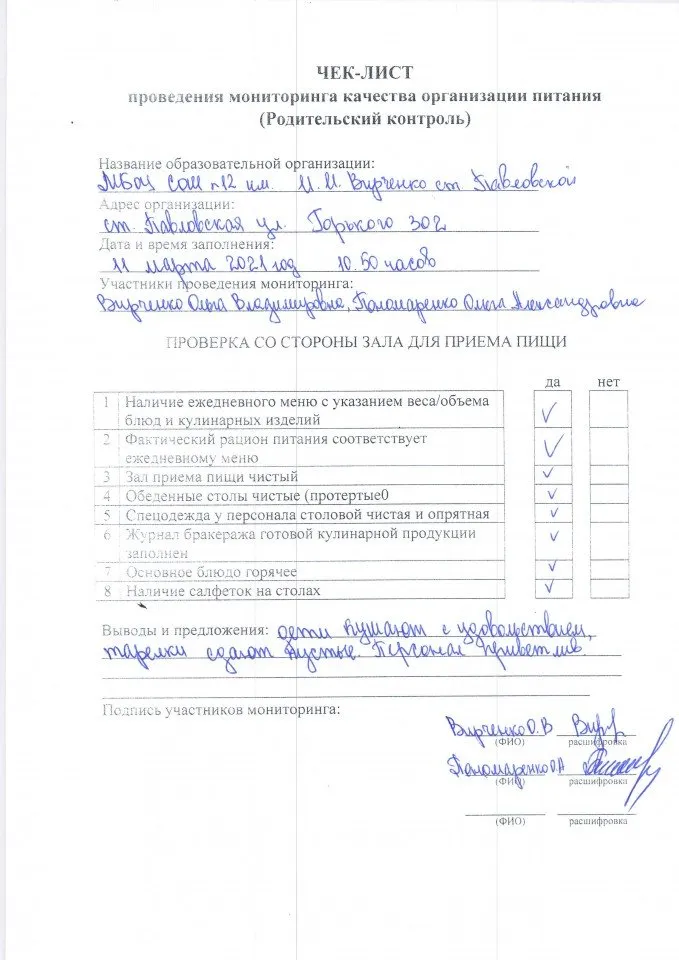 ЧЕК-ЛИСТ
проведения мониторинга качества организации питания
(Родительский контроль)
Название образовательной организации:
МБОУ СОШ №12 им. И.И. Вирченко ст. Павловской
Адрес организации:
ст. Павловская ул. Горького 302
Дата и время заполнения:
11 марта 2021 год 10.50 часов
Участники проведения мониторинга:
Вирченко Ольга Владимировна, Пономаренко Ольга Александровна
ПРОВЕРКА СО СТОРОНЫ ЗАЛА ДЛЯ ПРИЕМА ПИЩИ
да нет
1 Наличие ежедневного меню с указанием веса/объема
блюд и кулинарных изделий
2 Фактический рацион питания соответствует
ежедневному меню
3 Зал приема пищи чистый
4 Обеденные столы чистые (протертые0
5 Спецодежда у персонала столовой чистая и опрятная
6 Журнал бракеража готовой кулинарной продукции
заполнен
7 Основное блюдо горячее
8 Наличие салфеток на столах
Выводы и предложения: дети кушают с удовольствием,
тарелки сдают пустые. Персонал приветлив.
Подпись участников мониторинга:
Вирченко О.В
(ФИО) расшифровка
Пономаренко О.А
(ФИО) расшифровка
(ФИО) расшифровка